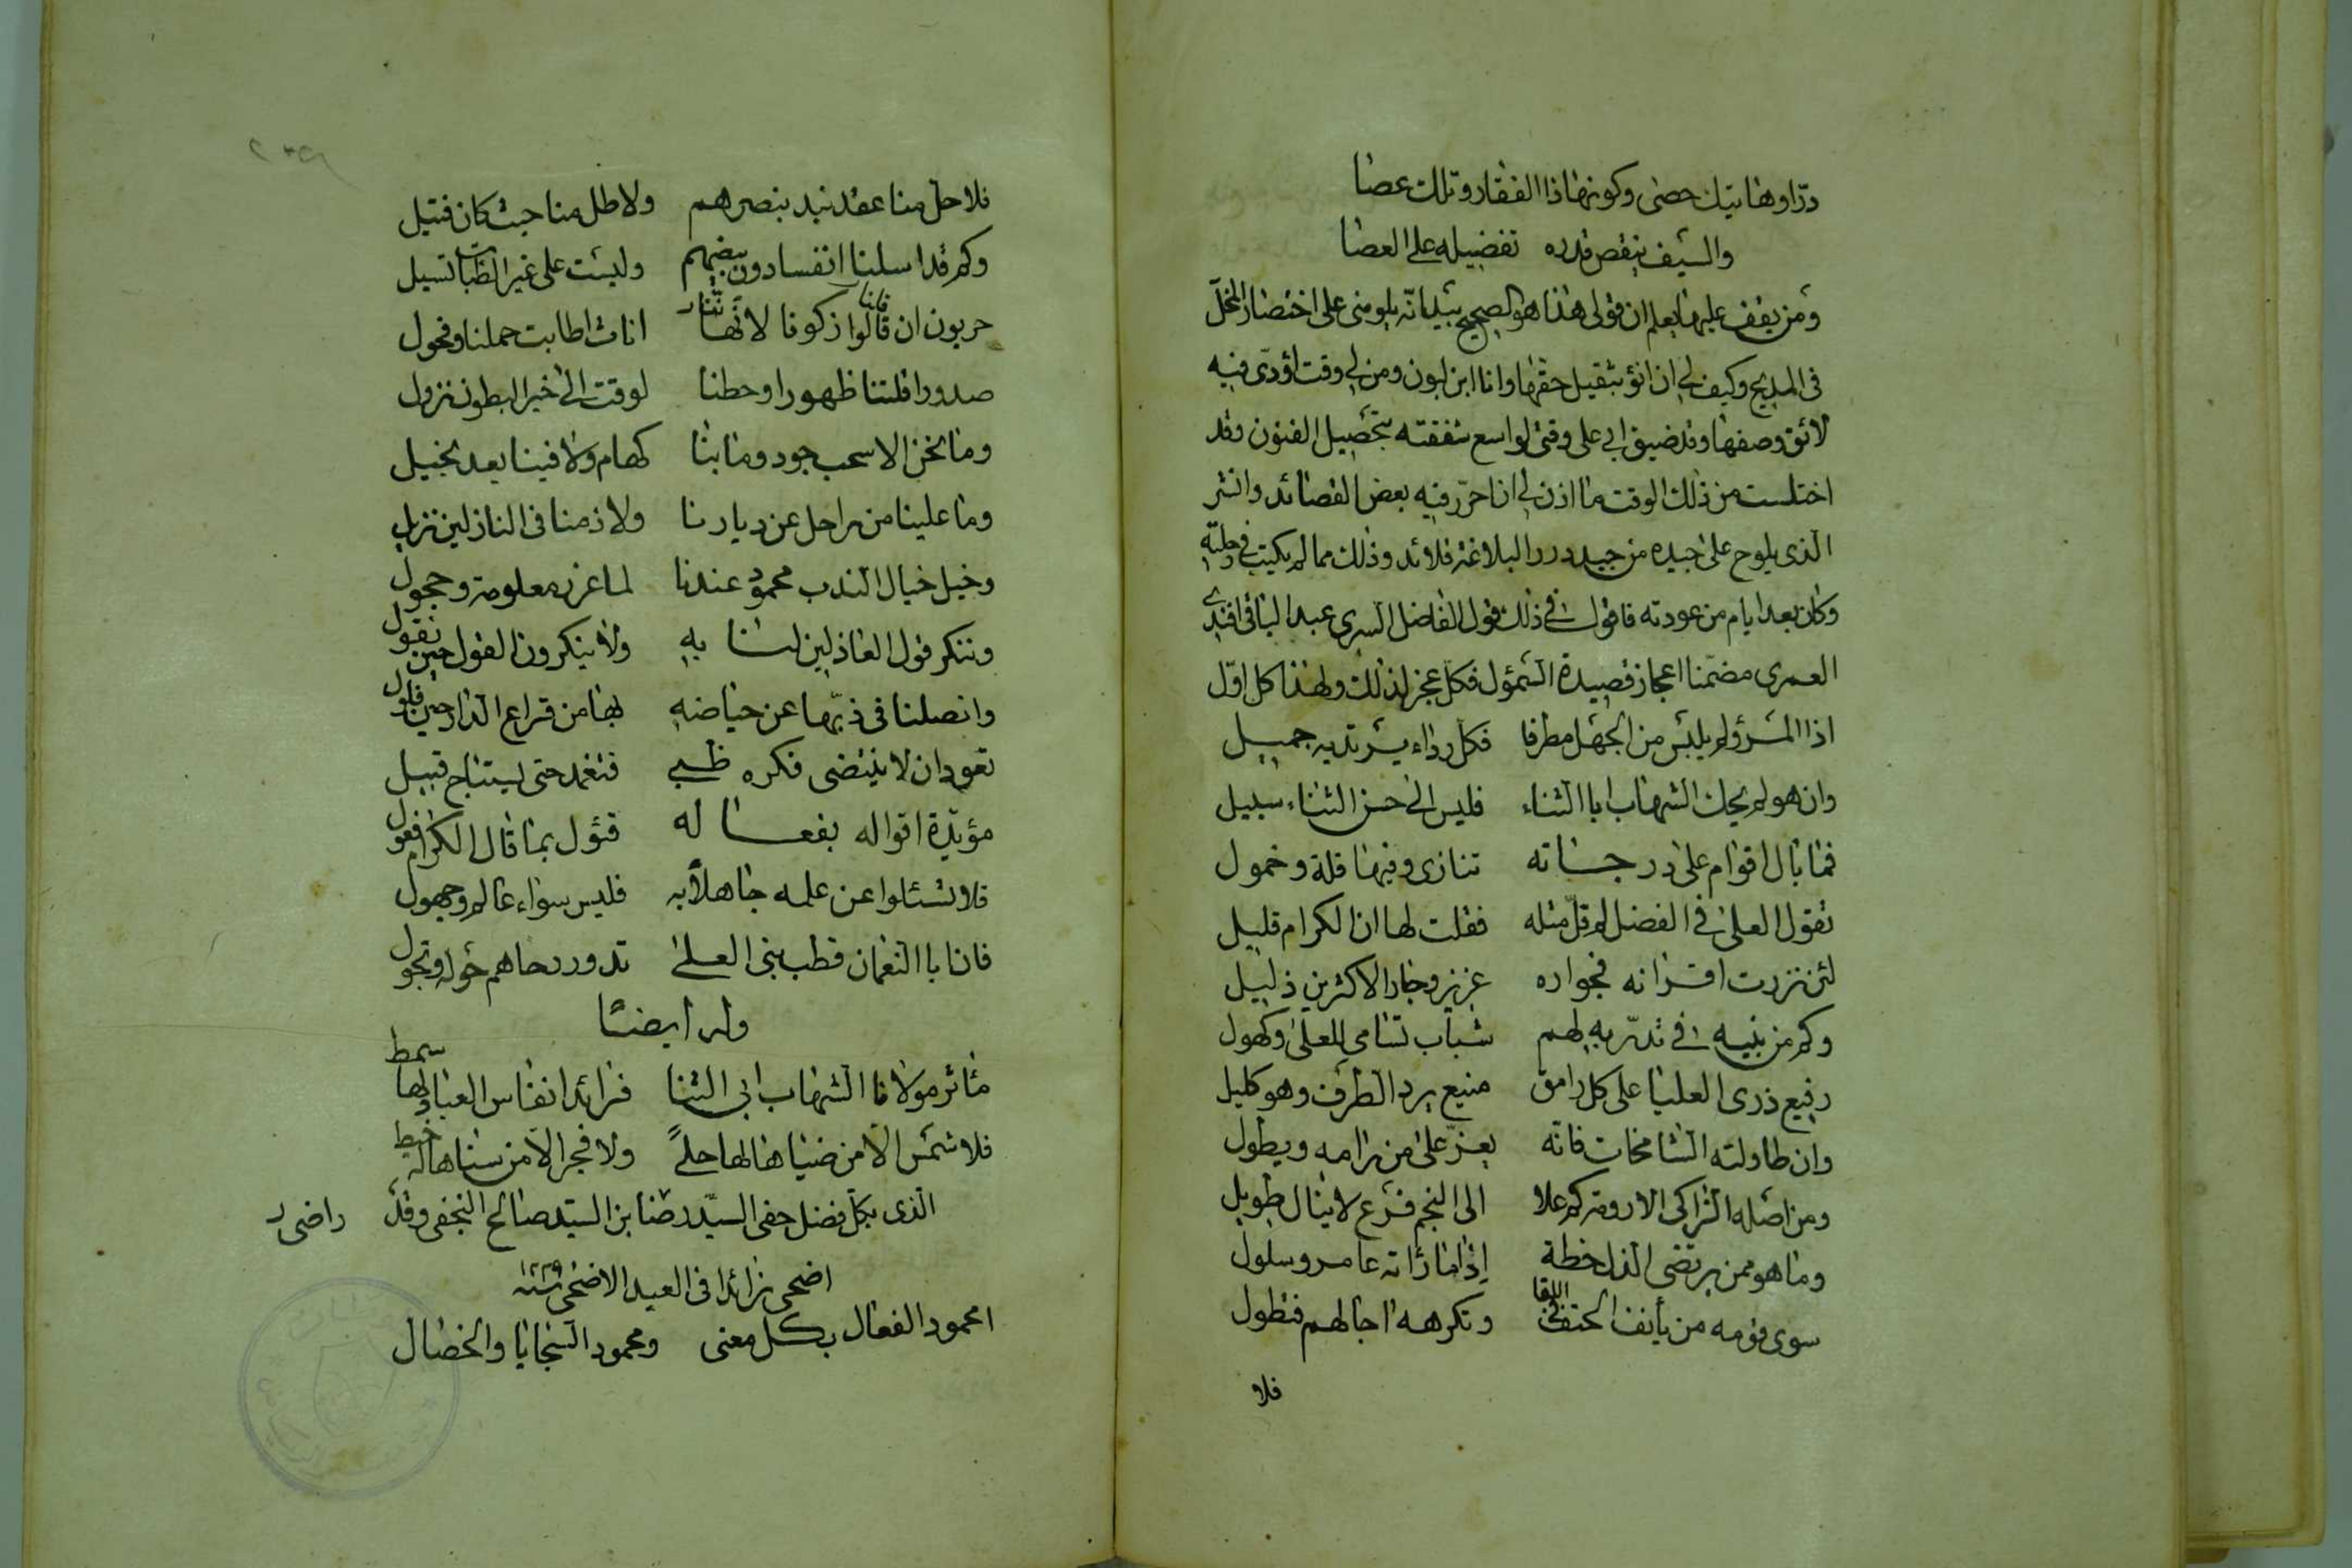 درّا وهاتيك حصى وكونها ذا الفقار وتلك عصا
والسيف ينقص قدره تفضيله على العصا
ومن يقف عليها يعلم ان قولى هذا هو الصحيح بيد انّه يلومنى على اختصار المخلّ
فى المديح وكيف لى ان انؤ بثقيل حقها وانا ابن لبون ومن لى وقت اؤدّى فيه
لائق وصفها وقد ضيق ابى على وقتى لواسع شفقته بتحصيل الفنون وقد
اختلست من ذلك الوقت ما اذن لى ان احرّر فيه بعض القصائد وانثر
الذى يلوح على جيده من جيد درر البلاغة قلائد وذلك مما لم يكتب فى حليّه
وكان بعد ايام من عودته فاقول فى ذلك قول الفاضل السرى عبد الباقى افندى
العمرى مضمّنا اعجاز قصيدة السمؤل فكل عجز لذلك ولهذا كل اوّل
اذا المرؤ لم يلبس من الجهل مطرفا فكل رداء يرتديه جميل
وان هو لم يحك الشهاب ابا الثناء فليس الى حسن الثناء سبيل
فما بال اقوام على درجاته تنازى وفيها قلة وخمول
تقول العلى فى الفضل لم قلّ مثله فقلت لها ان الكرام قليل
لئن نزرت اقرانه فجواره عزيز وجار الاكثرين ذليل
وكم من بنيه فى تدرّبه لهم شباب تسامى للعلى وكهول
رفيع ذرى العليا على كل رامق منيع يرد الطرف وهو كليل
وان طاولته الشامخات فانّه يعزّ على من رامه ويطول
ومن اصله الزاكى الارومة كم علا الى النجم فرع لا ينال طويل
وما هو ممن يرتضى الذل خطة اذا ما رأته عامر وسلول
سوى قومه من يأنف الحتف فى اللقا وتكرهه اجالهم فتطول
فلا
فلا حل منا عقد نيد بنصرهم ولا طل منا حيث كان قتيل
وكم قد اسلنا انفسا دون بيضهم وليست على غير الظبات تسيل
حربون ان قالوا ذكونا لاننا اناث اطابت حملنا وفحول
صدورا قلتنا ظهورا وحطنا لوقت الى خير البطون نزول
وما نحن الا سحب جود وما بنا كهام ولا فينا يعد بخيل
وما علينا من راحل عن ديارنا ولا ذمنا فى النازلين نزيل
وخيل خيال الندب محمود عندنا لها غرر معلومة وحجول
وننكر قول العاذلين لنا به ولا ينكرون القول حين نقول
وانصلنا فى ذبّها عن حياضه بها من قراع الدارعين فلول
تعود ان لا ينتضى فكره ظبى فتغمد حتى يستباح قبيل
مؤيّدة اقواله بفعاله قؤل بما قال الكرام فعول
فلا تسئلوا عن علمه جاهلا به فليس سواء عالم وجهول
فان ابا النعمان قطب بنى العلى تدور رحاهم حوله وتجول
وله ايضا
مئاثر مولانا الشهاب ابى الثنا فرائد انفاس العبا لها سمط
فلا شمس الا من ضياها لها حلى ولا فجر الا من سناها له خيط
الذى بكل فضل حفى السيّد رضا بن السيّد صالح النجفى وقد راضى ر
اضحى زائدا فى العيد الاضحى سنة
امحمود الفعال بكل معنى ومحمود السجايا والخصال